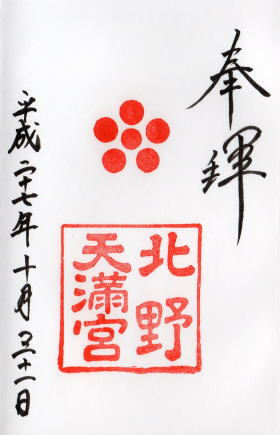 奉拝
北野
天満宮
平成二十七年十月三十一日